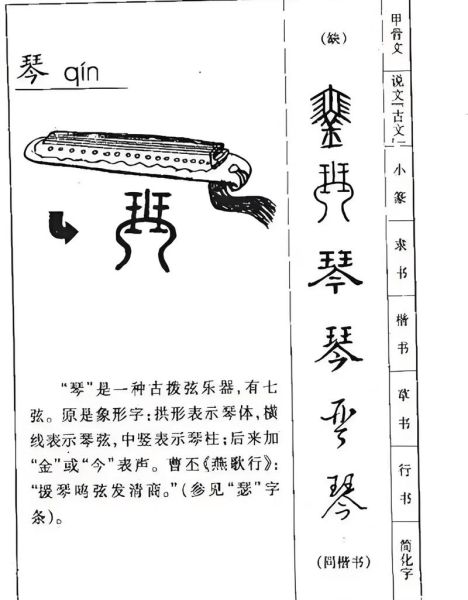 琴 qín
“琴”是一种古拨弦乐器,有七
弦。原是象形字;拱形表示琴体,横
线表示琴弦,中竖表示琴柱;后来加
“金”或“今”表声。曹丕《燕歌行》:
“援琴鸣弦发清商。”(参见“瑟”字
条)。
(缺)
琴
琴
琴
琴
(同楷书)
甲骨文
说文「古文」
小篆
隶书
楷书
草书
行书
简化字